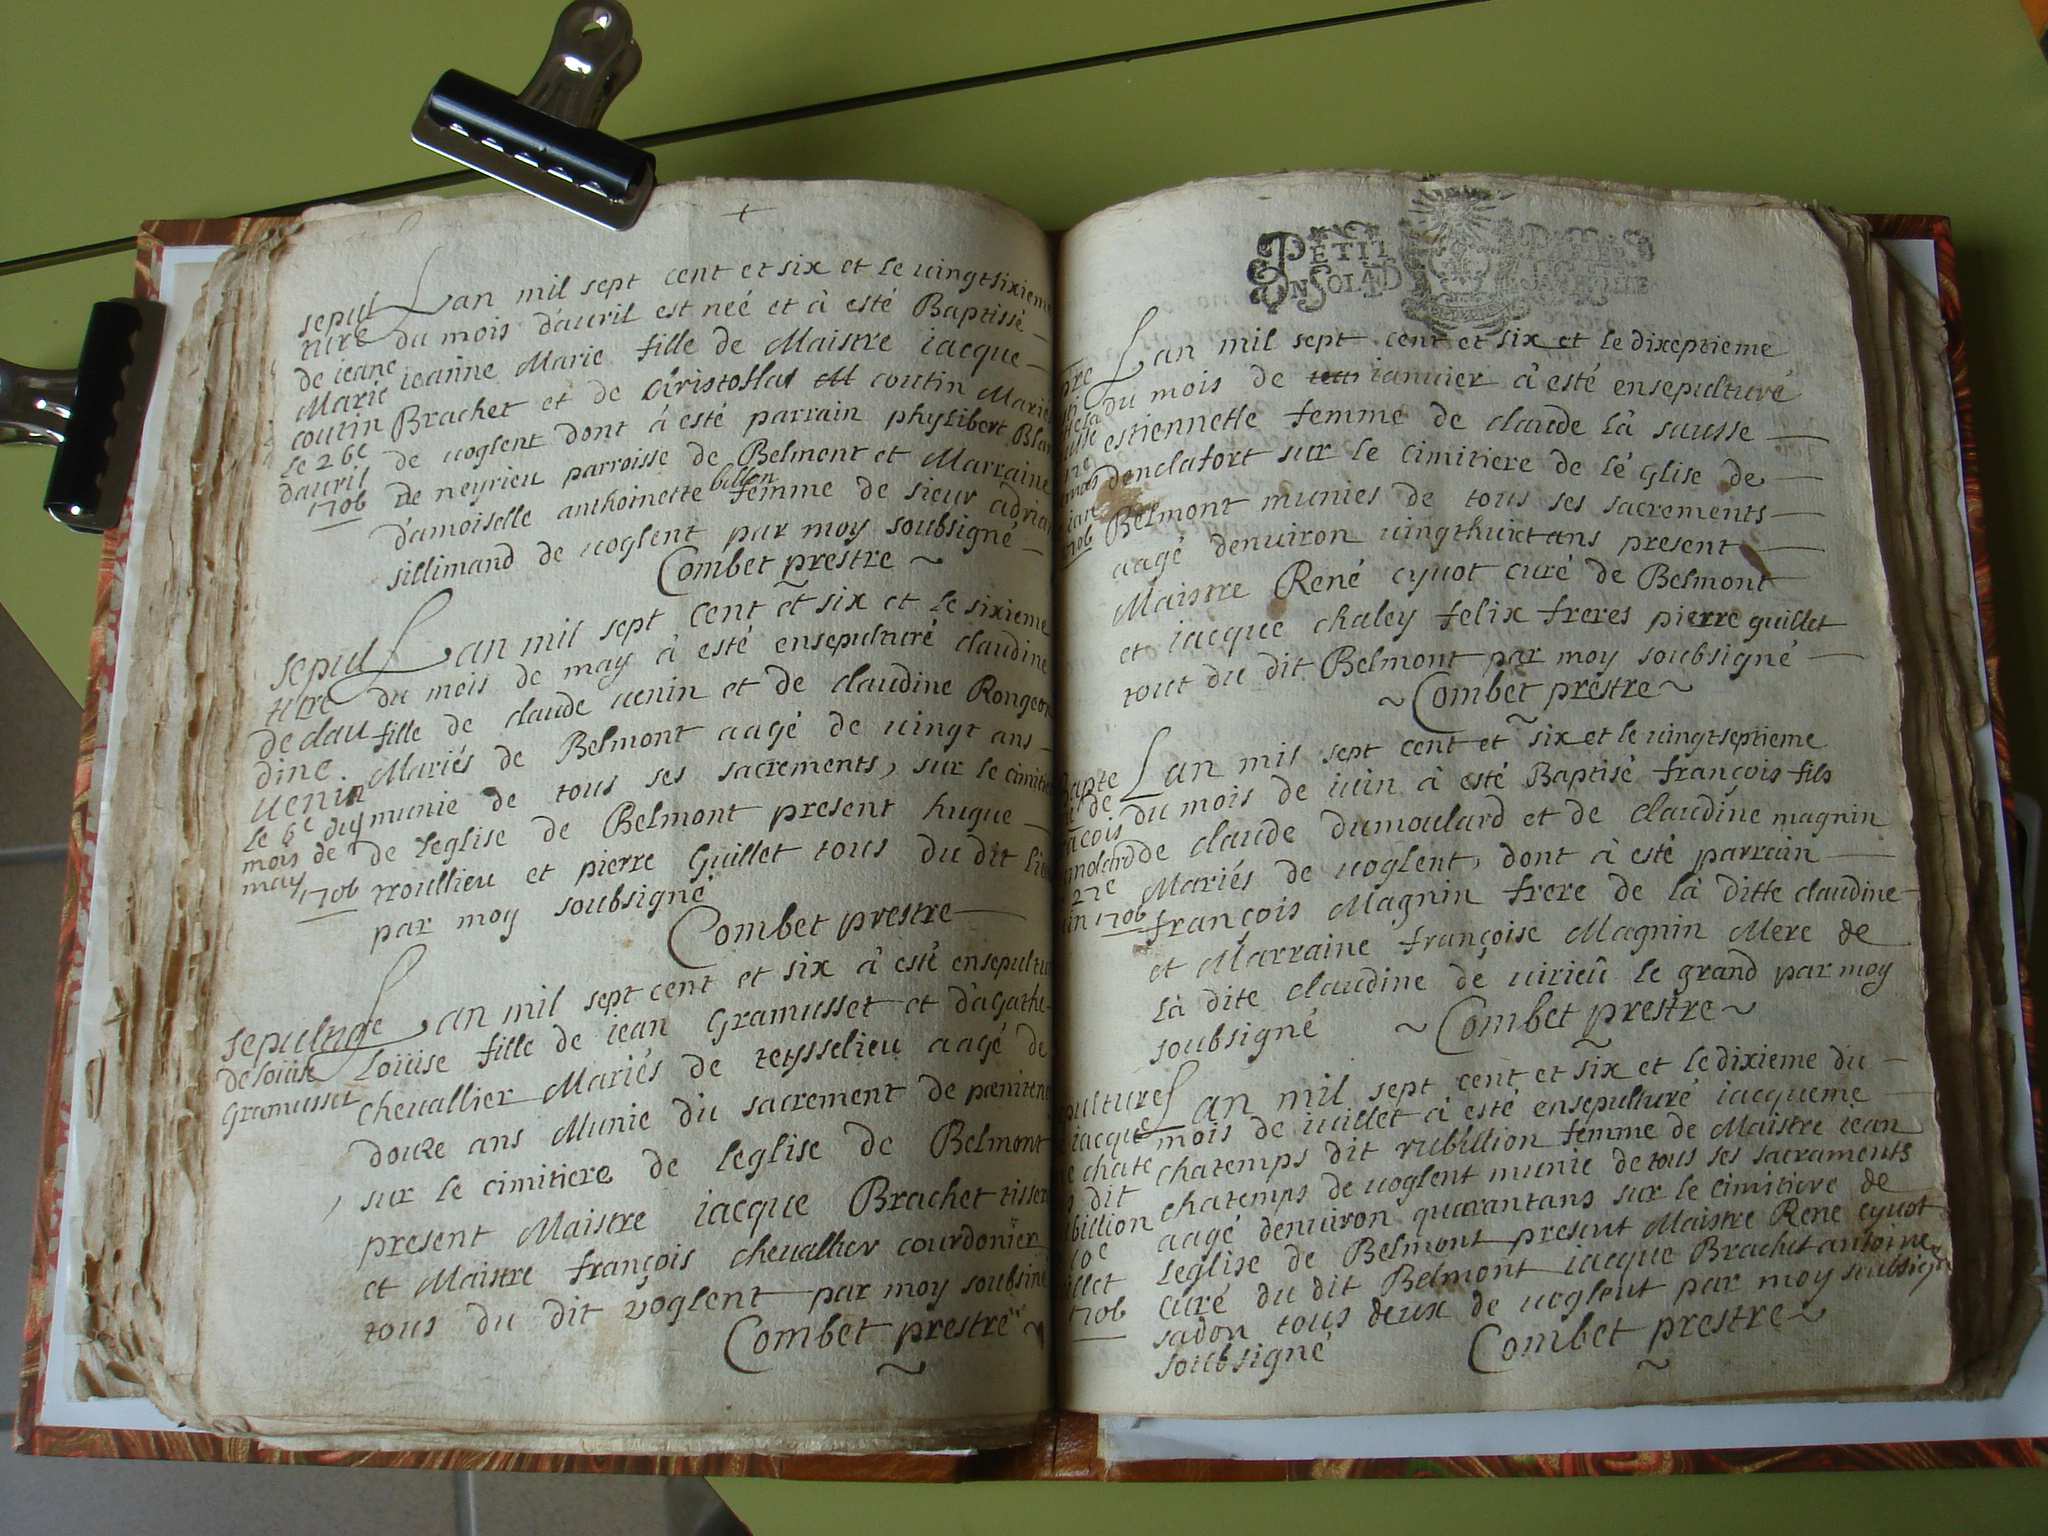 Lan mil sept cent et six et le vingtsixieme
du mois dauril est neé et à esté Baptissé
ieanne Marie fille de Maistre iacque
Brachet et de christofla coutin Mariés
de uoglent dont à esté parrain physibert
De neyrieu parroisse de Belmont et Marraine
billon
d'amoiselle anthoinette femme de sieur adrian
sillimand de uoglent par moy soubsigné
Combet prestre
sepul
ture
de ieane
Marie
coutin
le 26e
dauril
1706
Lan mil sept cent et six et le sixieme
du mois de may à esté ensepulturé claudine
fille de claude uenin et de claudine Rongeon
Mariés de Belmont aagé de uingt ans
munie de tous ses sacrements, sur le cimitie
de leglise de Belmont present hugue
troullieu et pierre Guillet tous du dit lieu
par moy soubsigné
Combet prestre
sepul
ture
de clau
dine
uenin
le 6e du
mois de
may
1706
Lan mil sept cent et six à esté ensepultu
Loüise fille de iean Gramusset et d'agathe
cheuallier Mariés de teysselieu aagé de
douze ans Munie du sacrement de pænitence
sur le cimitiere de leglise de Belmont
present Maistre iacque Brachet tisser
et Maistre françois cheuallier courdonier
tous du dit voglent par moy soubsiné
Combet prestre
sepulture
de loüise
Gramusset
PETIT
ON SOL A D
Lan mil sept cent et six et le dixeptieme
du mois de ianuier à esté ensepulturé
estiennette femme de claude là sausse
denclafort sur le cimitiere de lé glise de
Belmont munies de tous ses sacrements
aagé denuiron uingthuict ans present
Maistre René cyuot curé de Belmont
et iacque chaley felix freres pierre guillet
tout du dit Belmont par moy soubsigné
Combet prestre
1706
Lan mil sept cent et six et le uingtseptieme
du mois de iuin à esté Baptisé françois fils
de claude dumoulard et de claudine magnin
Mariés de uoglent, dont à esté parrain
françois Magnin frere de là ditte claudine
et Marraine françoise Magnin Mere de
là dite claudine de uirieû le grand par moy
soubsigné
Combet prestre
Bapte
de
27e
1706
Lan mil sept cent et six et le dixieme du
mois de iuillet à esté ensepulturé iacqueme
chatemps dit rubillion femme de Maistre iean
chatemps de uoglent munie de tous ses sacraments
aagé denuiron quarantans sur le cimitiere de
leglise de Belmont present Maistre René cyuot
curé du dit Belmont iacque Brachet antoine
sadon tous deux de uoglent par moy soubsigné
soubsigné
Combet prestre
pulture
iacque
chate
dit
billion
10e
illet
1706